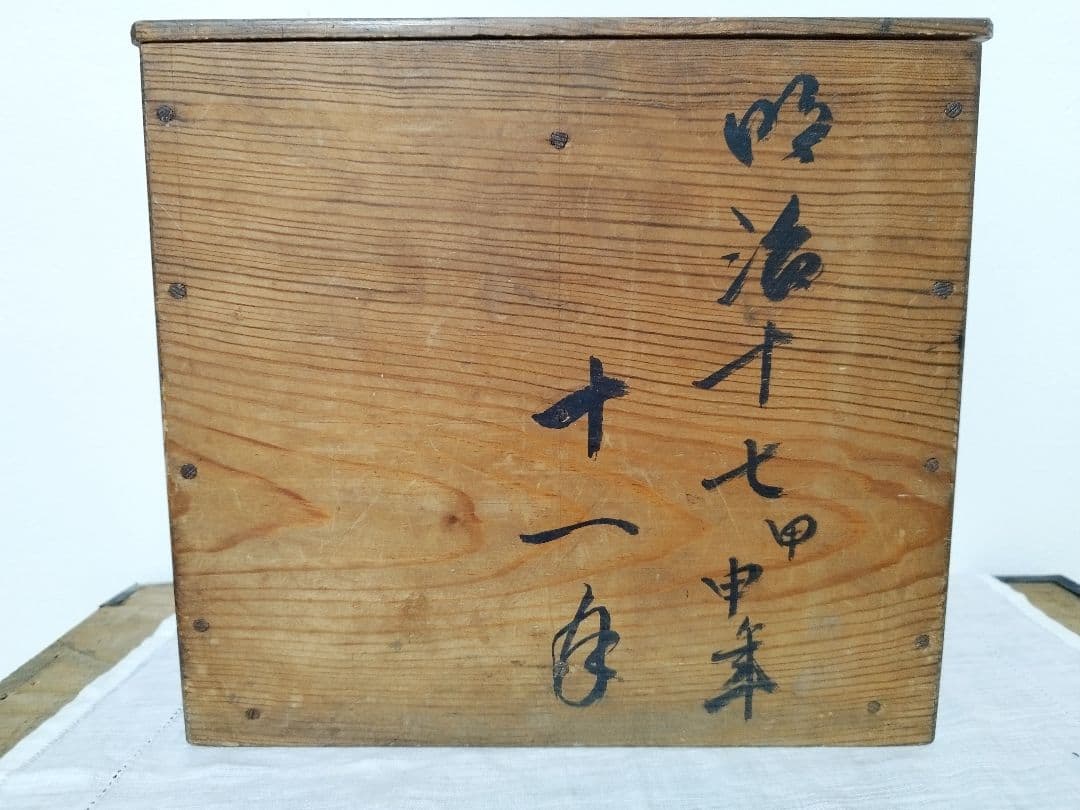 明治十七甲申年
十一月